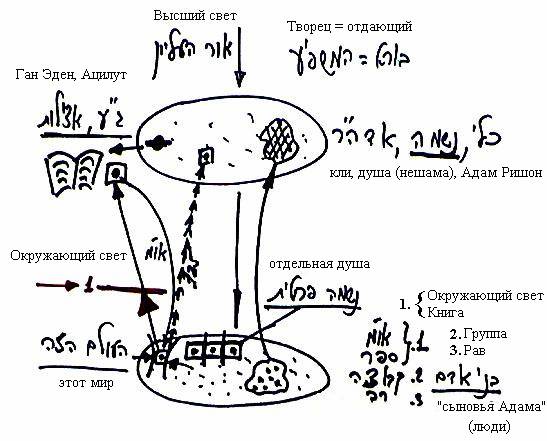 Высший свет
אור העליון
Творец = отдающий
בורא = המשפיע
Ган Эден, Ацилут
ג"ע, אצילות
כלי, נשמה, אדה"ר
кли, душа (нешама), Адам Ришон
או"מ
Окружающий свет
1
отдельная душа
נשמה פרטית
העולם הזה
этот мир
1. { Окружающий свет
Книга
2. Группа
3. Рав
או"מ } .1
ספר
קבוצה .2
רב .3
בני אדם
"сыновья Адама"
(люди)